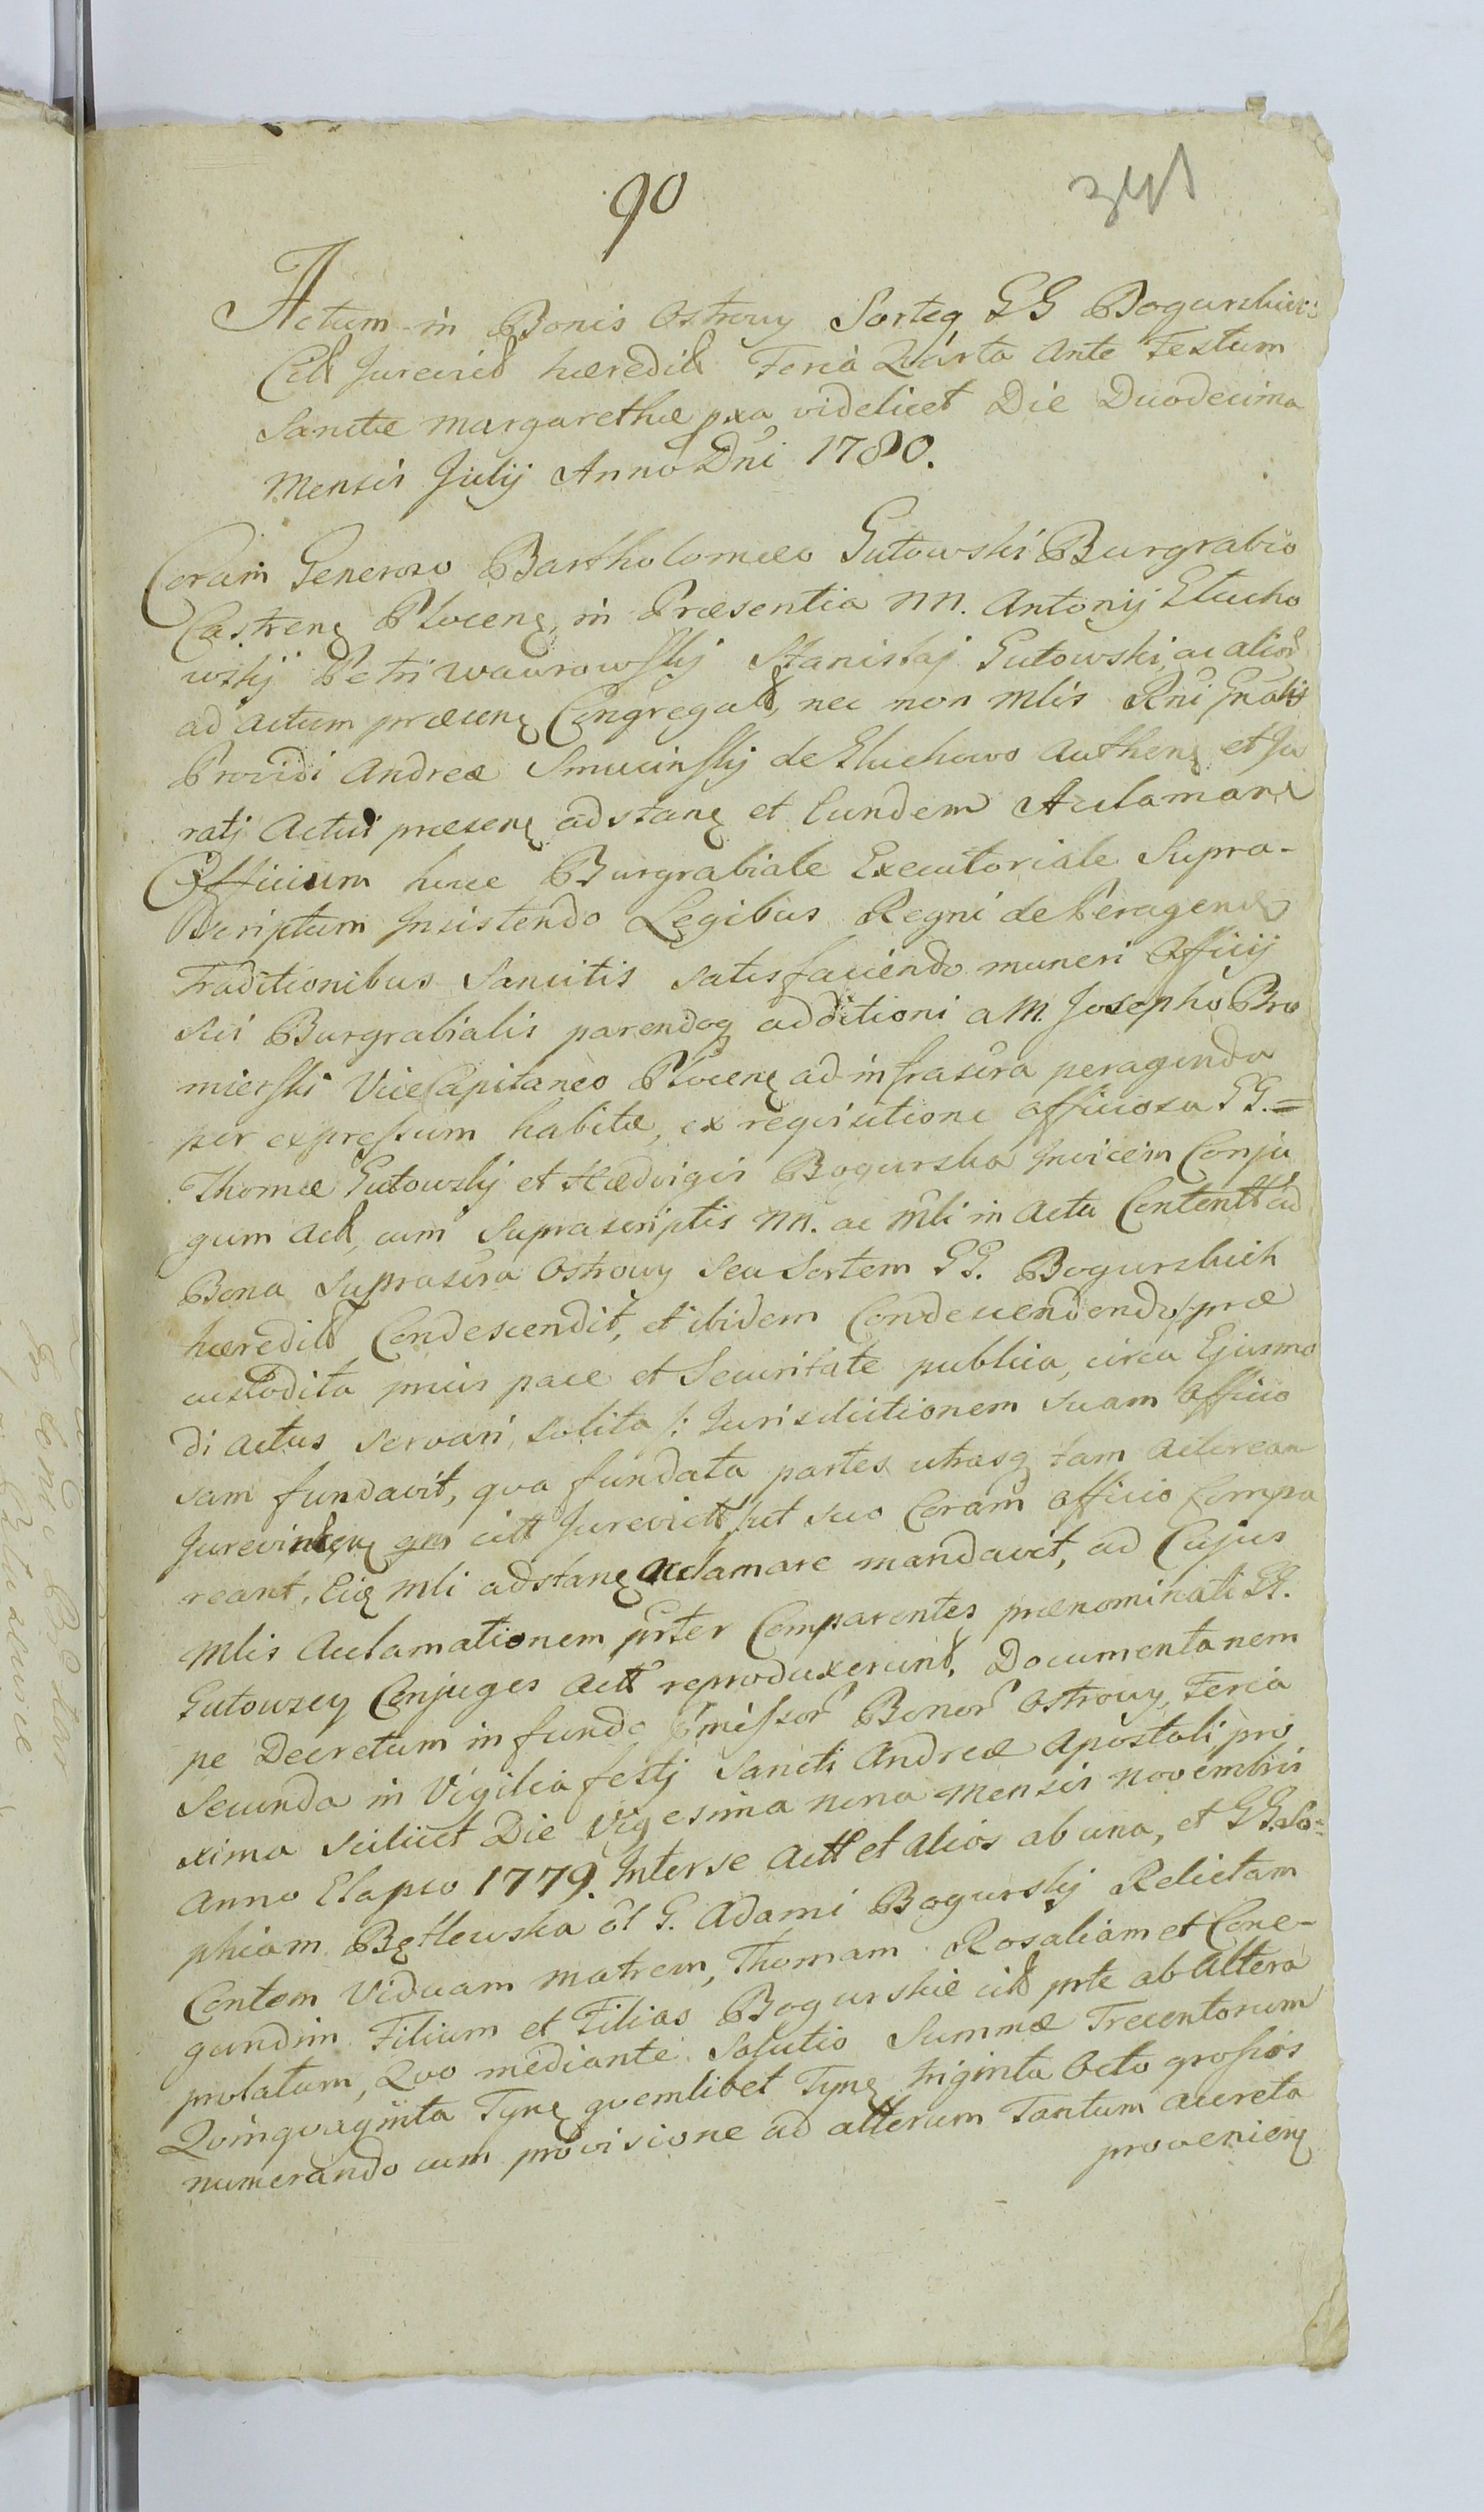 90
341
Actum in Bonis Ostrowy Sorteq GG Bogurskich
Citt Jurevict hæreditt Feria Quarta Ante Festum
Sanctæ Margarethæ pxa videlicet Die Duodecima
Mensis Julij Anno Dni 1780.
Coram Generoso Bartholomæo Gutowski Burgrabio
Castrenę Plocenę, in Præsentia NN. Antonij Głucho
wskj Petri Wawrowskj Stanislaj Gutowski, ac alior
ad actum præsenę Congregatt, nec non Mlis Rni Gnalis
Providi Andreæ Smucinskj de Gluchowo Authenę et Ju
ratj Actui præsenę adstanę et Eundem Aclamanę
Officium hocce Burgrabiale Executoriale Supra-
scriptum Insistendo Legibus Regni de Peragendis
Traditionibus Sancitis satisfaciendo muneri Officij
sui Burgrabialis parendoq additioni a M. Josepho Bro
mierski ViceCapitaneo Plocenę ad infrascra peragenda
per expressum habitæ, ex requisitione officiosa GG. =
Thomæ Gutowskj et Hædvigis Bogurska Invicem Conju
gum Actt, cum Suprascriptis NN. ac Mli in Actu Contentt ad
Bona Suprascra Ostrowy seu Sortem GG. Bogurskich
hæreditt Condescendit, et ibidem Condescendendo /: præ
custodita prius pace et Securitate publica, circa Ejusmo
di actus servari solita /: Jurisdictionem suam officio
sam fundavit, qva fundata partes utrasq tam actoream
Jurevincenę qm citt Jurevictt ut suo Coram Officio Compa
reant, Eiq Mli adstanę aclamare mandavit, ad Cujus
Mlis Aclamationem prter Comparentes prænominati GG.
Gutowscy Conjuges Actt reproduxerunt, Documenta nem
pe Decretum in fundo pmissor Bonor Ostrowy, Feria
Secunda in Vigilia festj Sancti Andreæ Apostoli pro
xima scilicet Die Vigesima nona Mensis Novembris
Anno Elapso 1779. Inter se Actt et alios ab una, et GG. So=
phiam Bętlewska ol G. Adami Bogurskj Relictam
Contem Viduam Matrem, Thomam Rosaliam et Cune-
gundim Filium et Filias Bogurskie citt prte ab Altera
prolatum, Quo mediante Solutio Summæ Trecentorum
Quinqvaginta Tynę qvemlibet Tynę triginta Octo grossos
numerando cum provisione ad alterum Tantum acreta
provenienę